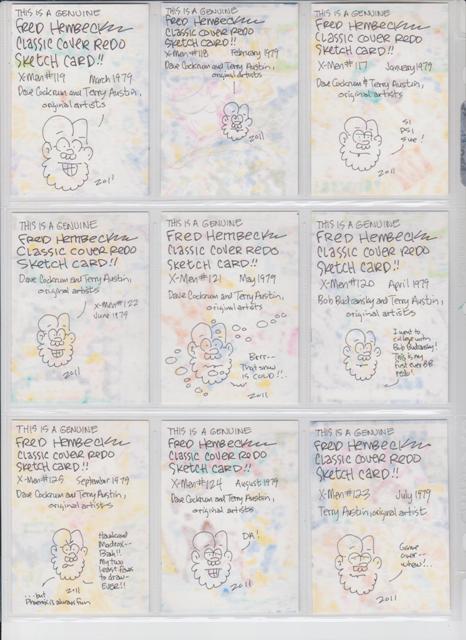 THIS IS A GENUINE
FRED HEMBECK
CLASSIC COVER REDO
SKETCH CARD!!
X-Men #119 March 1979
Dave Cockrum and Terry Austin,
original artists
2011
THIS IS A GENUINE
FRED HEMBECK
CLASSIC COVER REDO
SKETCH CARD!!
X-Men #118 February 1979
Dave Cockrum and Terry Austin,
original artists
2011
THIS IS A GENUINE
FRED HEMBECK
CLASSIC COVER REDO
SKETCH CARD!!
X-Men #117 January 1979
Dave Cockrum & Terry Austin,
original artists
SI
PSI
SUE!
2011
THIS IS A GENUINE
FRED HEMBECK
CLASSIC COVER REDO
SKETCH CARD!!
Dave Cockrum and Terry Austin,
original artists
X-Men #122
June 1979
2011
THIS IS A GENUINE
FRED HEMBECK
CLASSIC COVER REDO
SKETCH CARD!!
X-Men #121 May 1979
Dave Cockrum and Terry Austin,
original artists
Brrr--
That snow
is COLD!!..
2011
THIS IS A GENUINE
FRED HEMBECK
CLASSIC COVER REDO
SKETCH CARD!!
X-Men #120 April 1979
Bob Budiansky and Terry Austin,
original artists
I went to
college with
Bob Budiansky!
This is my
first ever BB
redo!
2011
THIS IS A GENUINE
FRED HEMBECK
CLASSIC COVER REDO
SKETCH CARD!!
X-Men #125 September 1979
Dave Cockrum and Terry Austin,
original artists
Havok and
Madrox--
Blah!!
My two
least faves
to draw--
EVER!!
2011
...but
Phoenix is always fun
THIS IS A GENUINE
FRED HEMBECK
CLASSIC COVER REDO
SKETCH CARD!!
X-Men #124 August 1979
Dave Cockrum and Terry Austin,
original artists
DA!
2011
THIS IS A GENUINE
FRED HEMBECK
CLASSIC COVER REDO
SKETCH CARD!!
X-Men #123 July 1979
Terry Austin, original artist
Game
over--
whew!..
2011